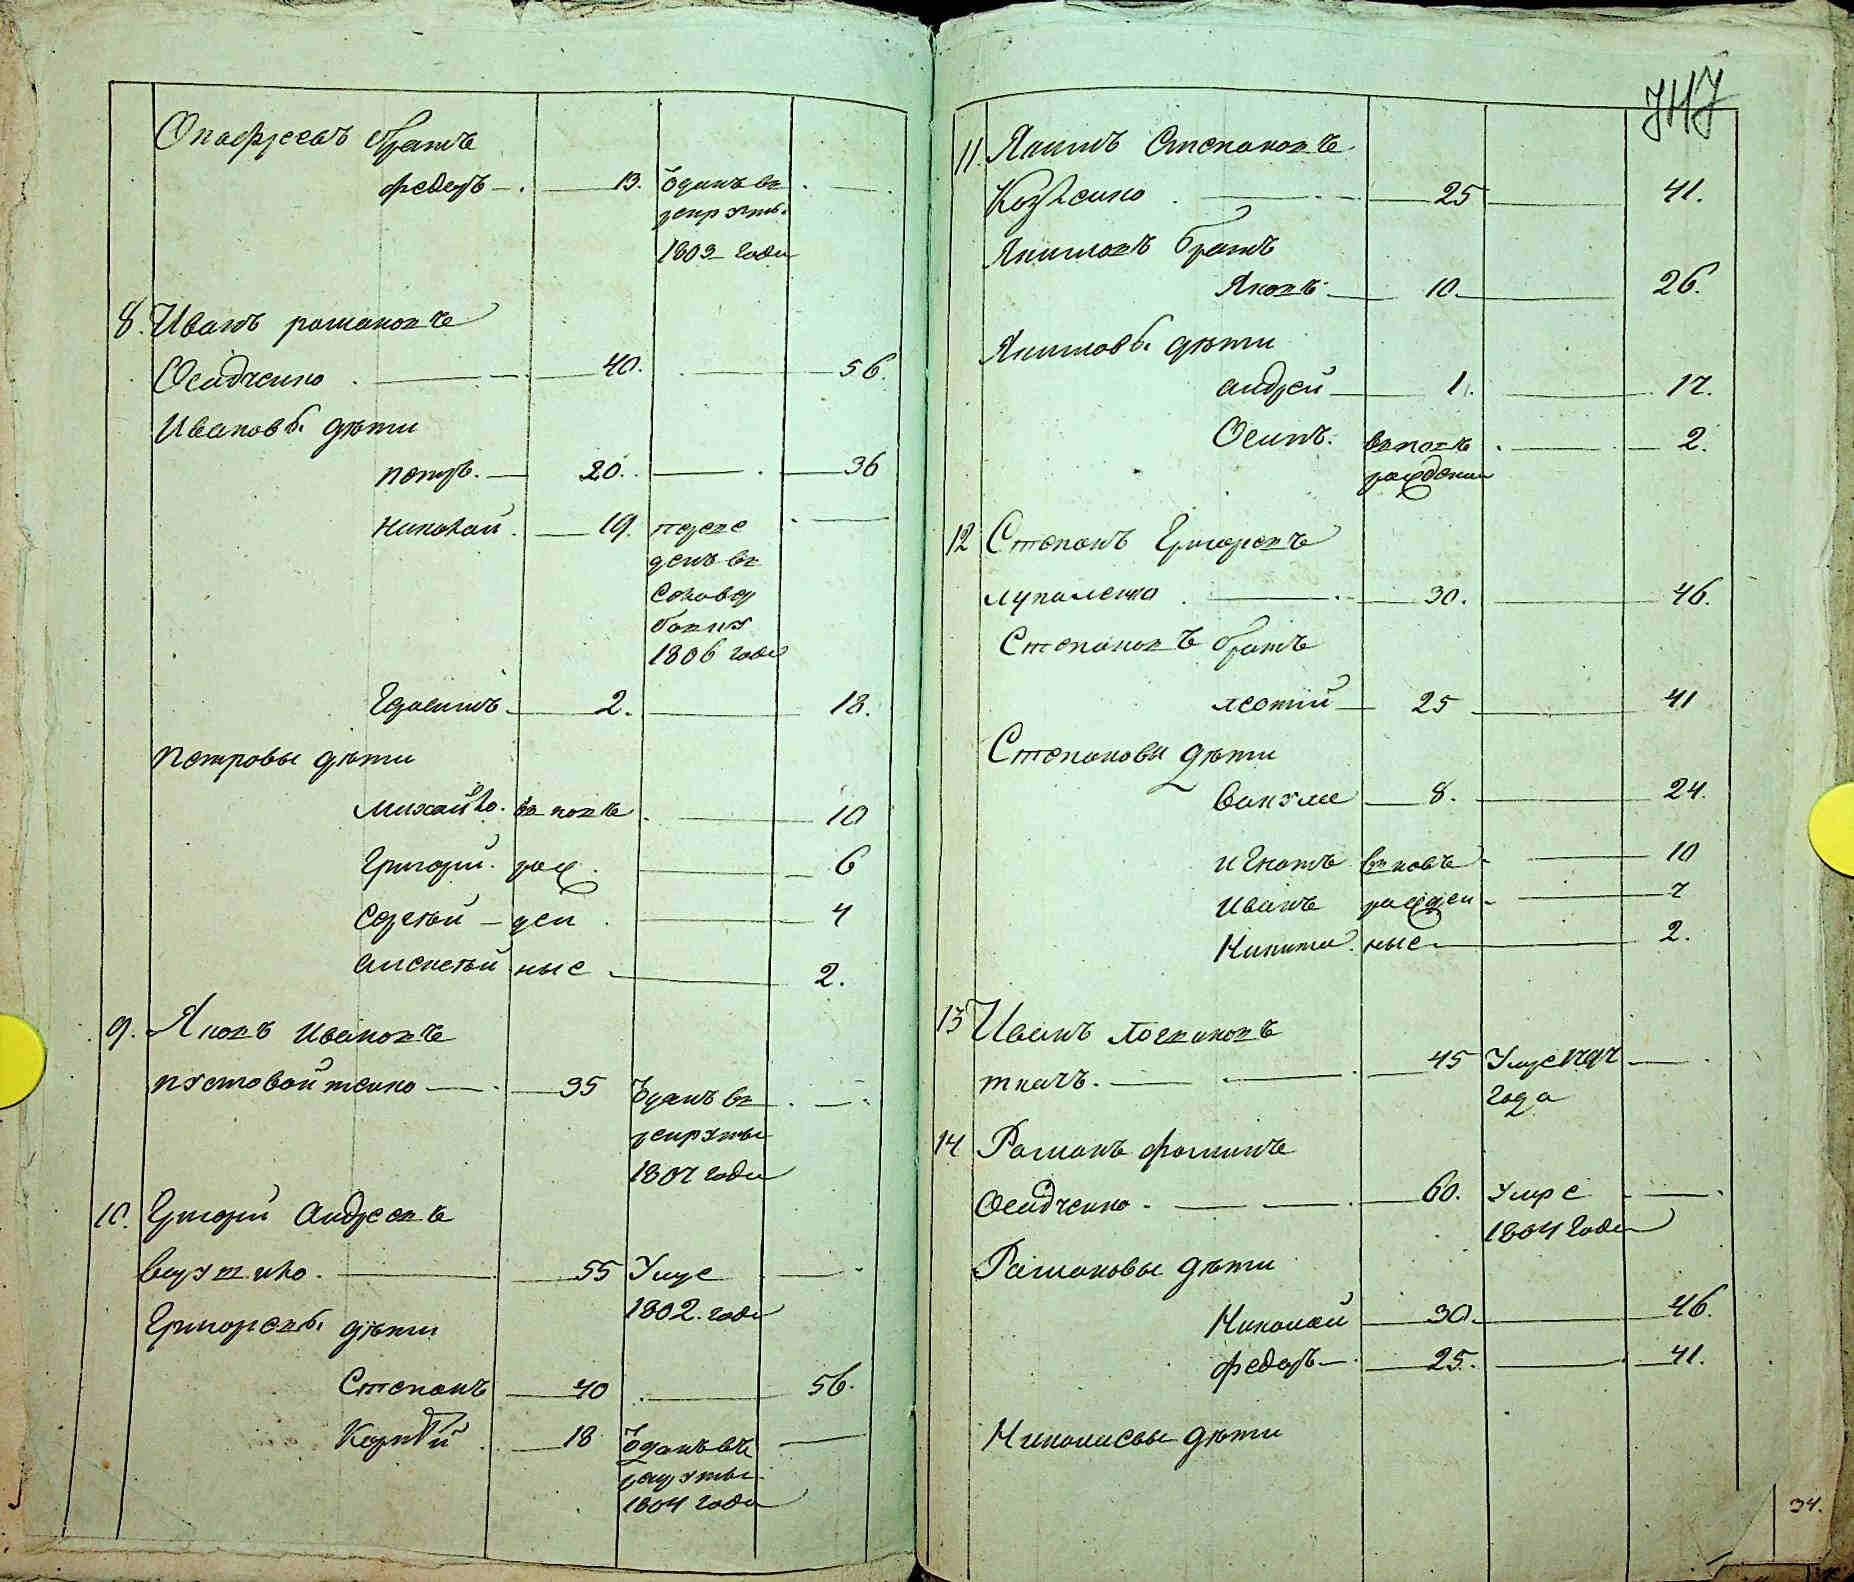 Онофреевъ братъ
Федоръ 13. Отданъ въ
рекруты
1803 года
8. Иванъ Романовъ
Осадченко 40. 56.
Ивановы дѣти
Петръ 20. 36
Николай 19. переве
денъ въ
1806 года
Герасимъ 2. 18.
Петровы дѣти
Михайло вновѣ 10
Григорій рож 6
Сергѣй ден 4
Алексѣй ные 2.
9. Яковъ Ивановъ
Пустовойтенко 35 Отданъ въ
рекруты
1807 года
10. Григорій Андреевъ
55 Умре
1802. года
Григорьевы дѣти
Степанъ 40 56.
Корнѣй 18 Отданъ въ
рекруты
1804 года
ЗНЗ
11. Якимъ Степановъ
25 41.
Якимовъ братъ
Яковъ 10. 26.
Якимовы дѣти
Андрей 1. 17.
Осипъ. вновѣ 2.
рожденъ
12 Степанъ Григорьевъ
Лупаленко 30. 46.
Степановъ братъ
Леонтій 25 41
Степановы дѣти
8. 24.
Игнатъ вновѣ 10
Иванъ рожден 7
Никита ные 2.
13 Иванъ Логвиновъ
Ткачъ. 45 Умре
года
14 Романъ Фоминъ
Осадченко 60. Умре
1804 года
Романовы дѣти
Николай 30. 46.
Федоръ 25. 41.
Николаевы дѣти
34.